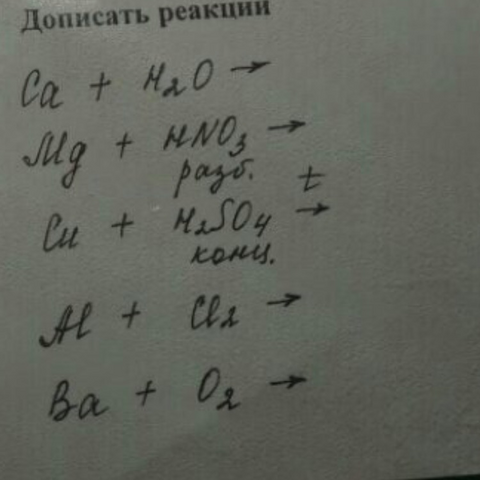 Дописать реакции
Ca + H₂O →
Mg + HNO₃ →
разб. t
Cu + H₂SO₄ →
конц.
Al + Cl₂ →
Ba + O₂ →